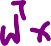 w^T x